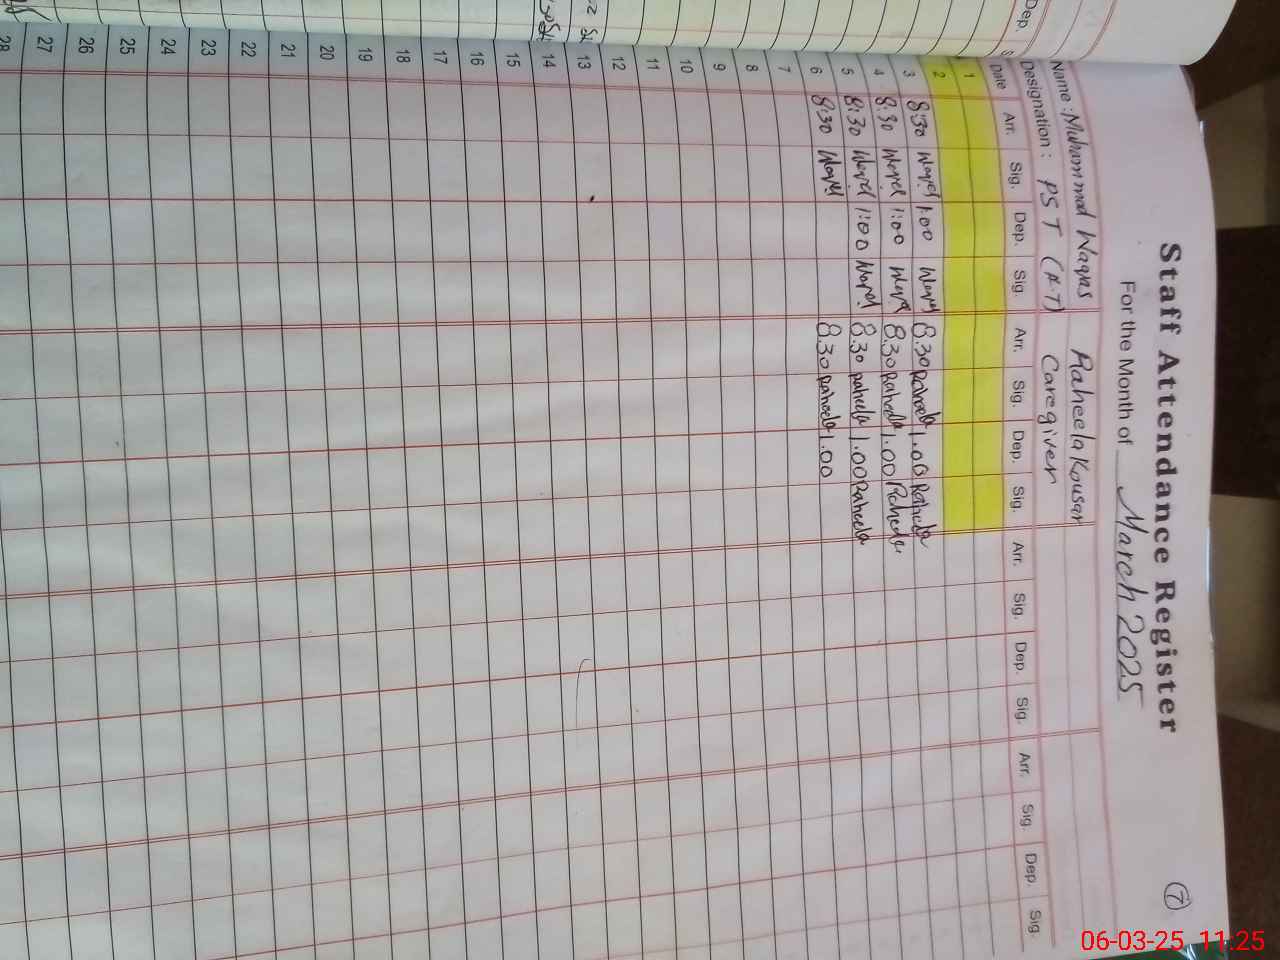 Staff Attendance Register
7
For the Month of March 2025
Name : Muhammad Waqas Raheela Kousar
Designation : PST (A.T) Caregiver
Date Arr. Sig. Dep. Sig. Arr. Sig. Dep. Sig. Arr. Sig. Dep. Sig. Arr. Sig. Dep. Sig.
1
2
3 8:30 Waqas 1:00 Waqas 8.30 Raheela 1.00 Raheela
4 8:30 Waqas 1:00 Waqas 8.30 Raheela 1.00 Raheela
5 8:30 Waqas 1:00 Waqas 8.30 Raheela 1.00 Raheela
6 8:30 Waqas 8.30 Raheela 1.00
7
8
9
10
11
12
13
14
15
16
17
18
19
20
21
22
23
24
25
26
27
28
Dep.
06-03-25 11:25